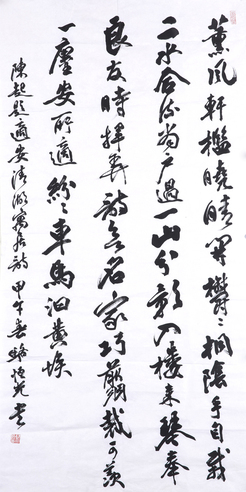 薰風軒檻曉晴開欝々桐陰手自栽
二水合流當戶過一山分影入樓來琴奉
良友時揮弄詩名家巧翦裁可羨
一廛安所適紛々車馬汩黃埃
陳起題適安清湖寓居詩 甲午春 書